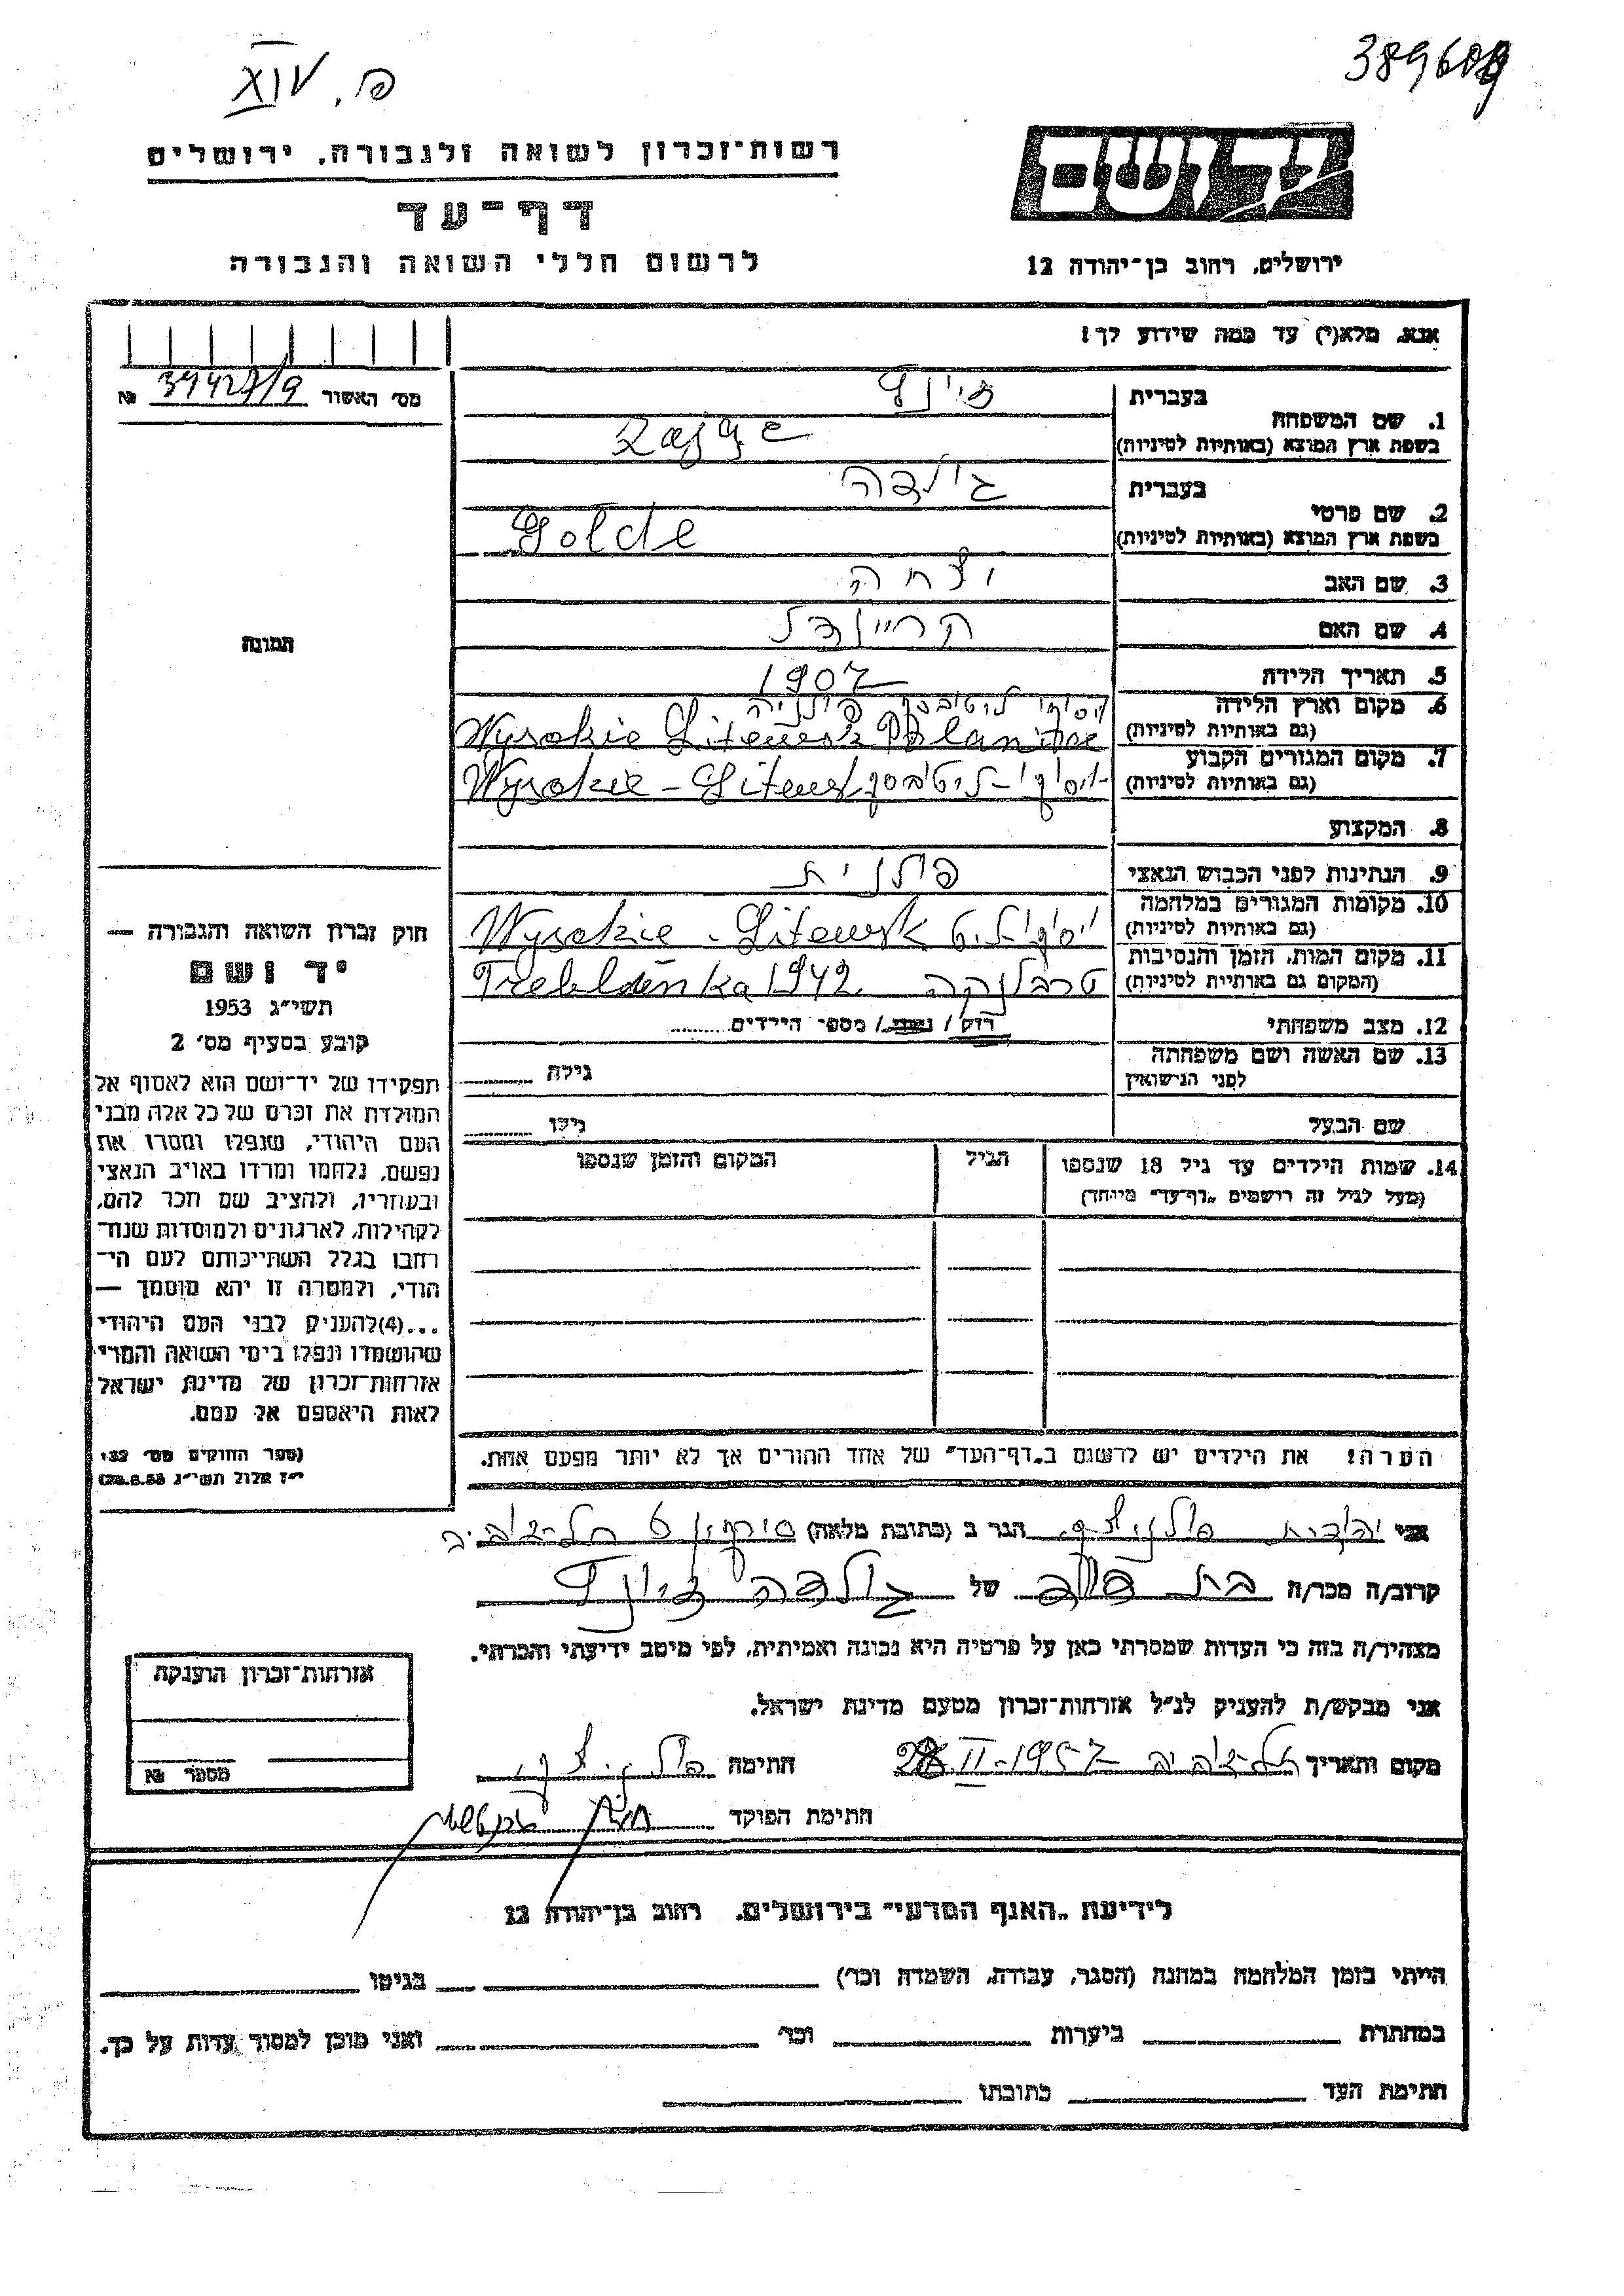 פ. XIV
רשות־זכרון לשואה ולגבורה, ירושלים
דף־עד
לרשום חללי השואה והגבורה
יד ושם
ירושלים, רחוב בן־יהודה 12
אנא, מלא(י) עד כמה שידוע לך!
מס׳ האשור 39427/9 №
1. שם המשפחה
בעברית
בשפת ארץ המוצא (באותיות לטיניות)
2. שם פרטי
בעברית גולדה
בשפת ארץ המוצא (באותיות לטיניות) Golde
3. שם האב
4. שם האם קריינדל
5. תאריך הלידה 1907
6. מקום וארץ הלידה ויסוקי ליטובסק פולניה
(גם באותיות לטיניות) Wysokie Litewsk
7. מקום המגורים הקבוע ויסוקי-ליטובסק
(גם באותיות לטיניות) Wysokie-Litewsk
8. המקצוע
9. הנתינות לפני הכבוש הנאצי פולנית
10. מקומות המגורים במלחמה
(גם באותיות לטיניות) Wysokie-Litewsk
11. מקום המות, הזמן והנסיבות טרבלנקה
(המקום גם באותיות לטיניות) 1942
12. מצב משפחתי רוק / נשוי / מספר הילדים
13. שם האשה ושם משפחתה
לפני הנישואין
גילה
שם הבעל גילו
14. שמות הילדים עד גיל 18 שנספו
(מעל לגיל זה רושמים „דף־עד״ מיוחד)
הגיל
המקום והזמן שנספו
הערה! את הילדים יש לרשום ב„דף־העד״ של אחד ההורים אך לא יותר מפעם אחת.
תמונה
חוק זכרון השואה והגבורה —
יד ושם
תשי״ג 1953
קובע בסעיף מס׳ 2
תפקידו של יד־ושם הוא לאסוף אל
המולדת את זכרם של כל אלה מבני
העם היהודי, שנפלו ומסרו את
נפשם, נלחמו ומרדו באויב הנאצי
ובעוזריו, ולהציב שם וזכר להם,
לקהילות, לארגונים ולמוסדות שנח־
רבו בגלל השתייכותם לעם הי־
הודי, ולמטרה זו יהא מוסמך —
...(4)להעניק לבני העם היהודי
שהושמדו ונפלו בימי השואה והמרי
אזרחות־זכרון של מדינת ישראל
לאות היאספם אל עמם.
(ספר החוקים מס׳ 132
י״ז אלול תשי״ג 28.8.53)
אני יהודית הגר ב (כתובת מלאה) תל-אביב
קרוב/ה מכר/ה בת דוד של גולדה
מצהיר/ה בזה כי העדות שמסרתי כאן על פרטיה היא נכונה ואמיתית, לפי מיטב ידיעתי והכרתי.
אני מבקש/ת להעניק לנ״ל אזרחות־זכרון מטעם מדינת ישראל.
מקום ותאריך תל-אביב II-1957 חתימה
חתימת הפוקד
אזרחות־זכרון הוענקה
מספר №
לידיעת „האגף המדעי״ בירושלים, רחוב בן־יהודה 12
הייתי בזמן המלחמה במחנה (הסגר, עבודה, השמדה וכו׳) בגיטו
במחתרת ביערות וכו׳ ואני מוכן למסור עדות על כך.
חתימת העד כתובתו